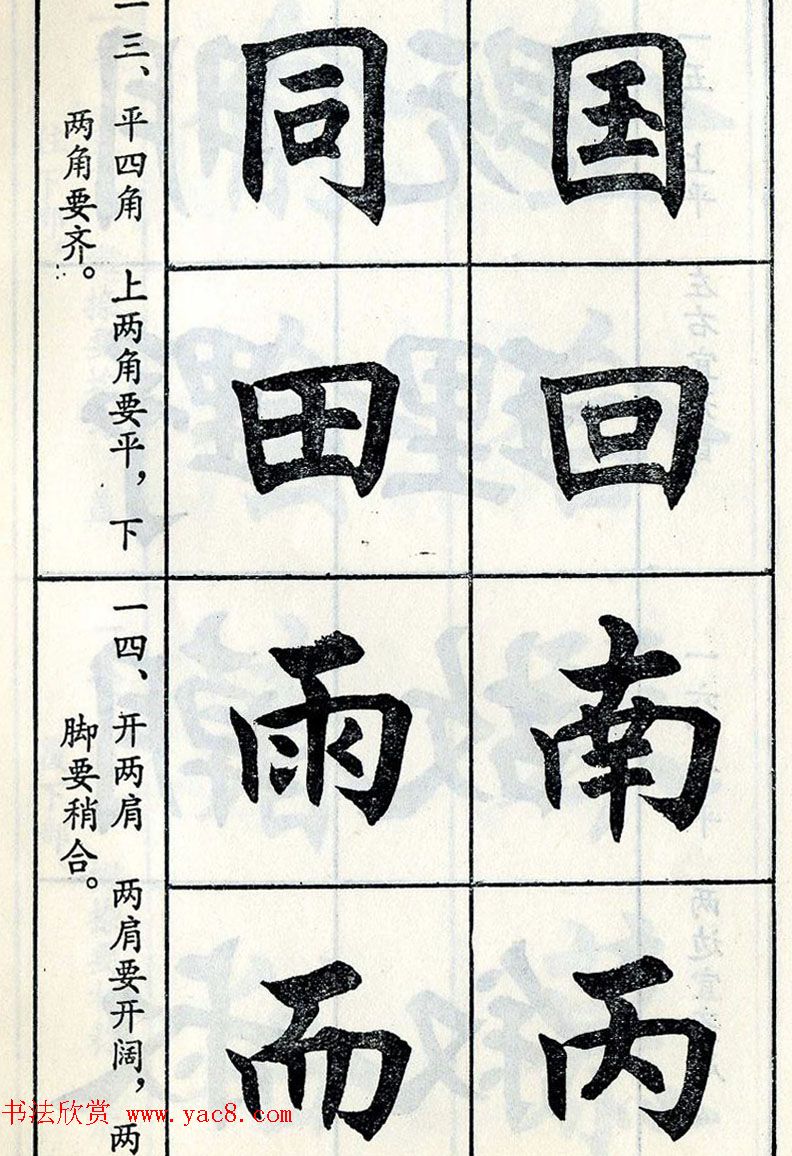 国回南丙
同田雨而
一三、平四角 上两角要平，下
两角要齐。
一四、开两肩 两肩要开阔，两
脚要稍合。
书法欣赏 www.yac8.com